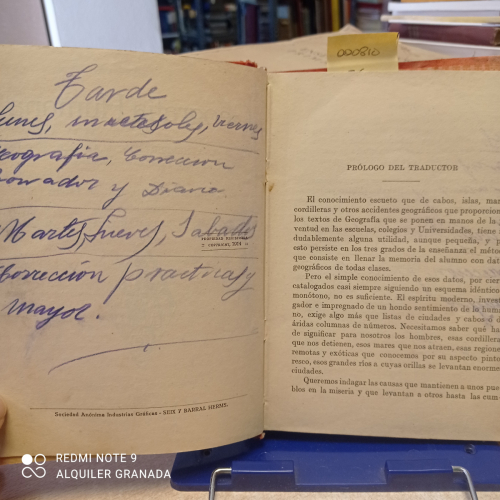 Tarde
lunes, miercoles, viernes
Geografia, Correccion
Borrador y Diario.
Martes, Jueves, Sabados
Correccion practicas y
Mayor.
Sociedad Anónima Industrias Gráficas - SEIX Y BARRAL HERMS.
000810
PRÓLOGO DEL TRADUCTOR
El conocimiento escueto de que de cabos, islas, mar
cordilleras y otros accidentes geográficos que proporcion
los textos de Geografía que se ponen en manos de la
ventud en las escuelas, colegios y Universidades, tiene
dudablemente alguna utilidad, aunque pequeña, y p
esto persiste en los tres grados de la enseñanza el métod
que consiste en llenar la memoria del alumno con dat
geográficos de todas clases.
Pero el simple conocimiento de esos datos, por cier
catalogados casi siempre siguiendo un esquema idéntico
monótono, no es suficiente. El espíritu moderno, inves
gador e impregnado de un hondo sentimiento de la hum
no, exige algo más que listas de ciudades y cabos o d
áridas columnas de números. Necesitamos saber qué h
de significar para nosotros los hombres, esas cordiller
que nos detienen, esos mares que nos atraen, esas regione
remotas y exóticas que conocemos por su aspecto pinto
resco, esos grandes ríos a cuyas orillas se levantan enorme
ciudades.
Queremos indagar las causas que mantienen a unos pue
blos en la miseria y que levantan a otros hasta las cum
REDMI NOTE 9
ALQUILER GRANADA